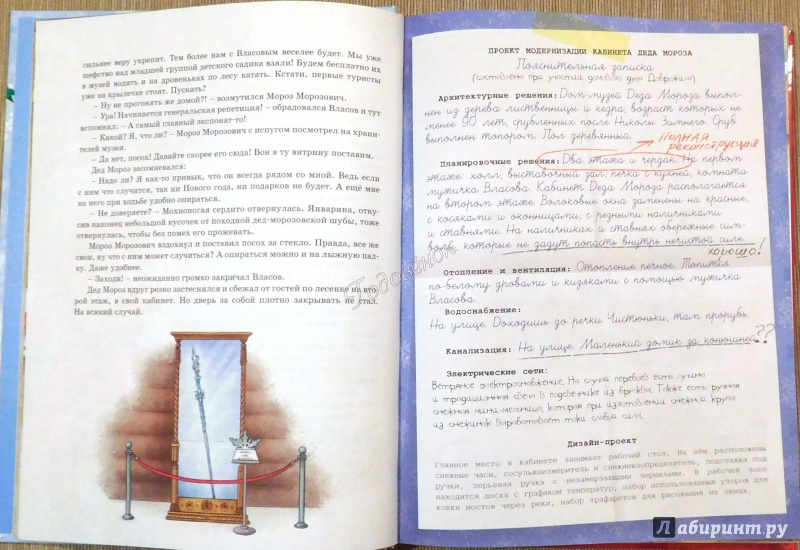 сильнее веру укрепит. Тем более нам с Власовым веселее будет. Мы уже
шефство над младшей группой детского садика взяли! Будем бесплатно их
в музей водить и на дровеньках по лесу катать. Кстати, первые туристы
уже на крылечке стоят. Пускать?
– Ну не прогонять же домой?! – возмутился Мороз Морозович.
– Ура! Начинается генеральная репетиция! – обрадовался Власов и тут
вспомнил: – А самый главный экспонат-то!
– Какой? Я, что ли? – Мороз Морозович с испугом посмотрел на храни-
телей музея.
– Да нет, посох! Давайте скорее его сюда! Вон ту витрину поставим.
Дед Мороз засомневался:
– Надо ли? Я как-то привык, что он всегда рядом со мной. Ведь если
с ним что случится, так ни Нового года, ни подарков не будет. А ещё мне
на него при ходьбе удобно опираться.
– Не доверяете? – Мохноногая сердито отвернулась. Январина, отку-
сив наконец небольшой кусочек от походной дед-морозовской шубы, тоже
отвернулась, чтобы без помех его прожевать.
Мороз Морозович вздохнул и поставил посох за стекло. Правда, все же
свои, ну что с ним может случиться? А опираться можно и на лыжную пал-
ку. Даже удобнее.
– Заходи! – неожиданно громко закричал Власов.
Дед Мороз вдруг резко застеснялся и сбежал от гостей по лесенке на вто-
рой этаж, в свой кабинет. Но дверь за собой плотно закрывать не стал.
На всякий случай.
ПРОЕКТ МОДЕРНИЗАЦИИ КАБИНЕТА ДЕДА МОРОЗА
Пояснительная записка
(составлена при участии домового духа Доброжила)
Архитектурные решения: Дом-музей Деда Мороза выпол-
нен из дерева лиственницы и кедра, возраст которых не
менее 90 лет, срубленных после Николы Зимнего. Сруб
выполнен топором. Пол деревянный.
ПОЛНАЯ
реконструкция
Планировочные решения: Два этажа и чердак. На первом
этаже: холл, выставочный зал, печка с кухней, комната
мужичка Власова. Кабинет Деда Мороза располагается
на втором этаже. Волоковые окна заменены на красные,
с косяками и оконницами, с резными наличниками
и ставнями. На наличниках и ставнях обережные сим-
волы, которые не дадут попасть внутрь нечистой силе.
хорошо!
Отопление и вентиляция: Отопление печное. Топится
по-белому дровами и кизяками с помощью мужичка
Власова.
Водоснабжение:
На улице. Доходишь до речки Чистюньки, там прорубь.
Канализация: На улице. Маленький домик за конюшней.??
Электрические сети:
Ветряное электроснабжение. На случай перебоев есть лучина
и традиционная свеча в подсвечнике из брюквы. Также есть ручная
снежная мини-мельница, которая при изготовлении снежной крупы
из снежинок вырабатывает токи слабой силы.
Дизайн-проект
Главное место в кабинете занимает рабочий стол. На нём расположены
снежные часы, сосулькоизмеритель и снежинкоопределитель, подставка под
ручки, перьевая ручка с незамерзающими чернилами. В рабочей зоне
находится доска с графиком температур, набор использованных узоров для
ковки мостов через реки, набор трафаретов для рисования на окнах.
Лабиринт.ру